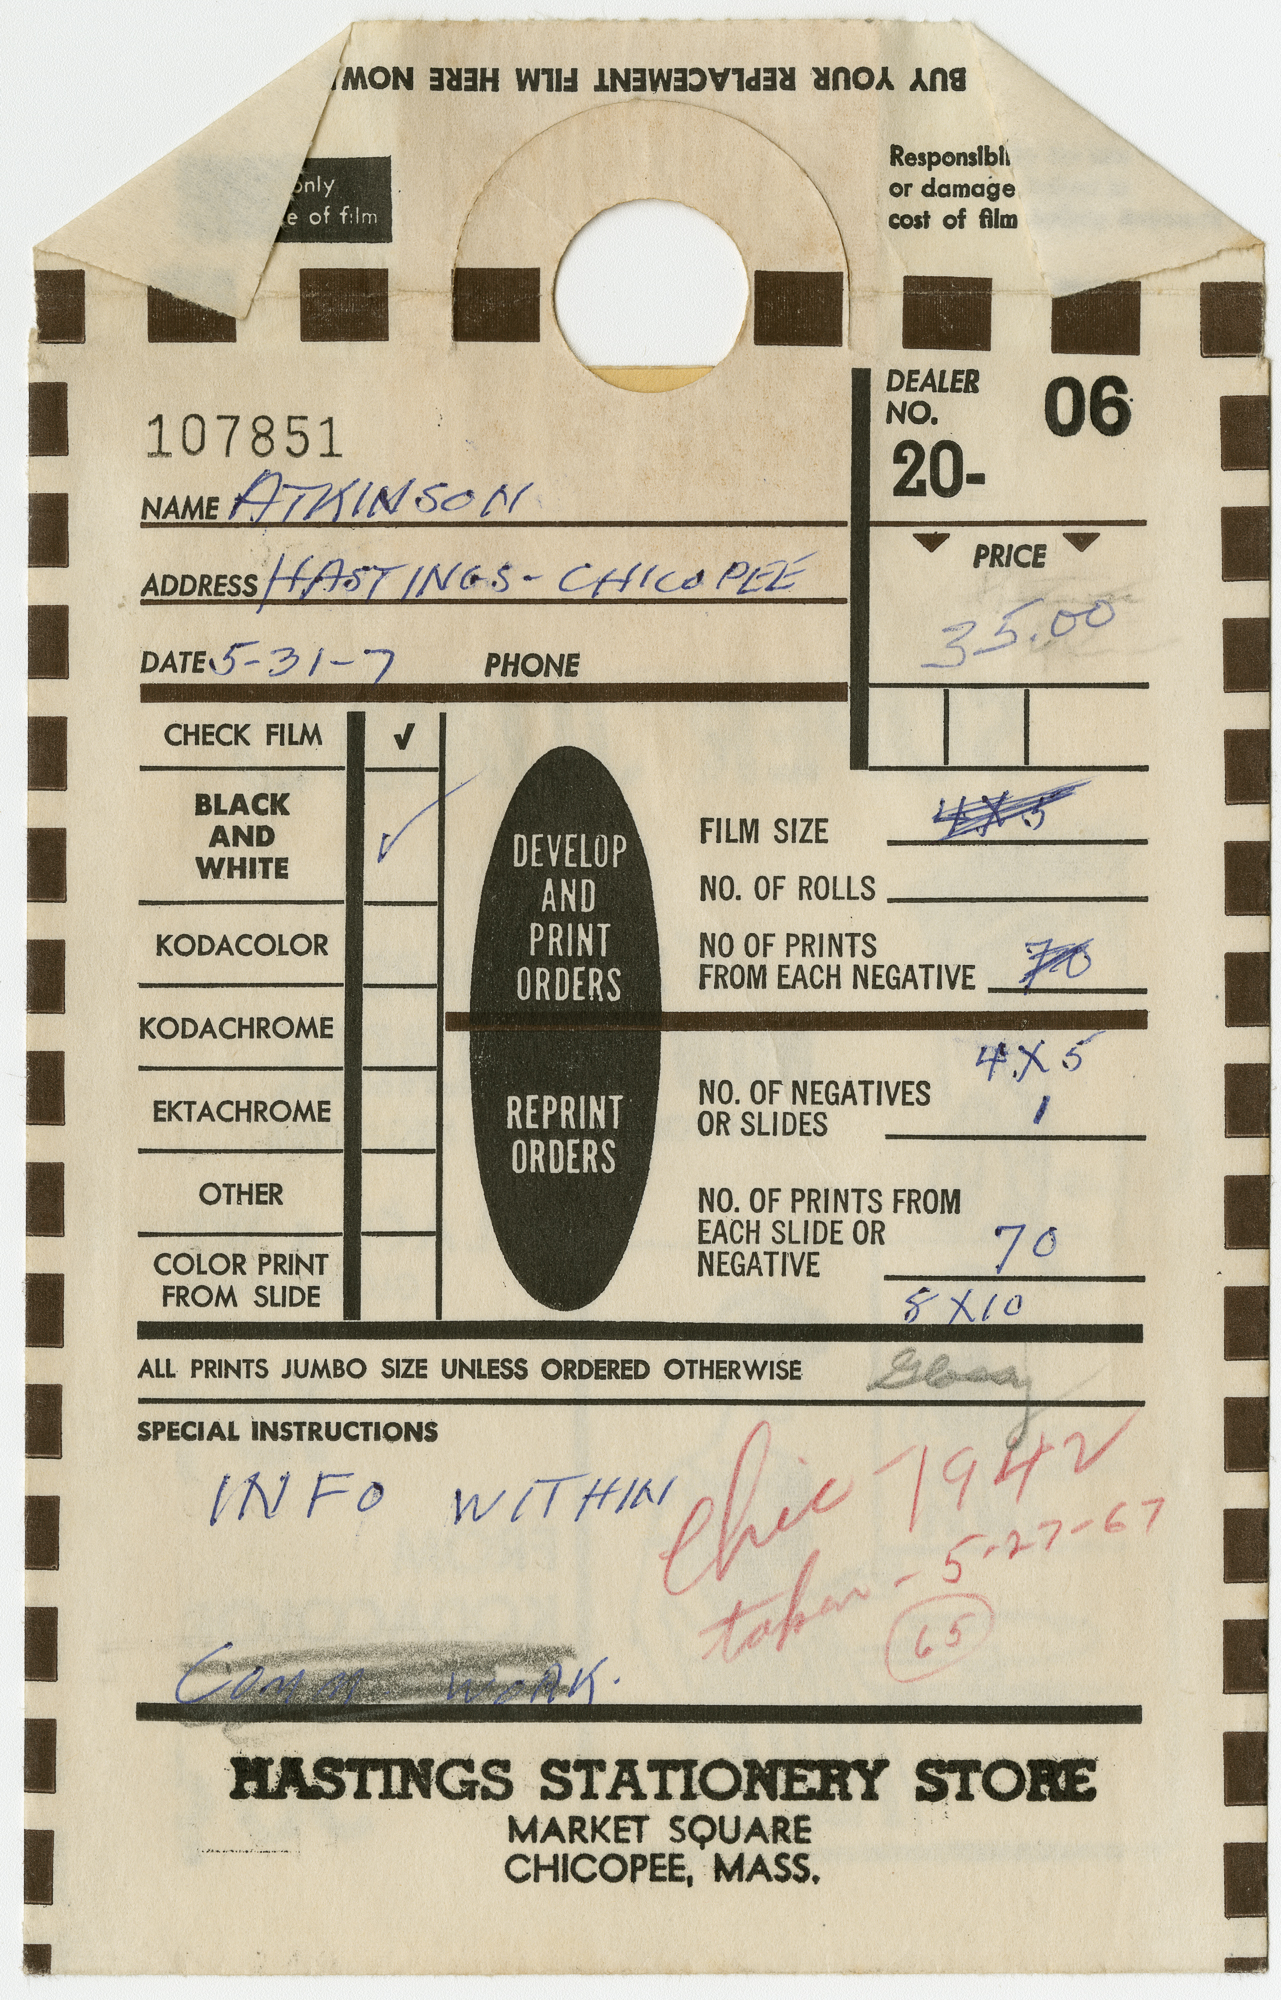 BUY YOUR REPLACEMENT FILM HERE NOW
only
e of film
Responsibil
or damage
cost of film
DEALER
NO.
20-
06
107851
NAME ATKINSON
ADDRESS HASTINGS - CHICOPEE
DATE 5-31-7 PHONE
PRICE
35.00
CHECK FILM ✓
BLACK
AND
WHITE ✓
KODACOLOR
KODACHROME
EKTACHROME
OTHER
COLOR PRINT
FROM SLIDE
DEVELOP
AND
PRINT
ORDERS
REPRINT
ORDERS
FILM SIZE 4X5
NO. OF ROLLS
NO OF PRINTS
FROM EACH NEGATIVE 70
4X5
NO. OF NEGATIVES
OR SLIDES 1
NO. OF PRINTS FROM
EACH SLIDE OR
NEGATIVE 70
8X10
ALL PRINTS JUMBO SIZE UNLESS ORDERED OTHERWISE Glossy
SPECIAL INSTRUCTIONS
INFO WITHIN
Chic - 1942
taken - 5-27-67
65
Comm WORK.
HASTINGS STATIONERY STORE
MARKET SQUARE
CHICOPEE, MASS.